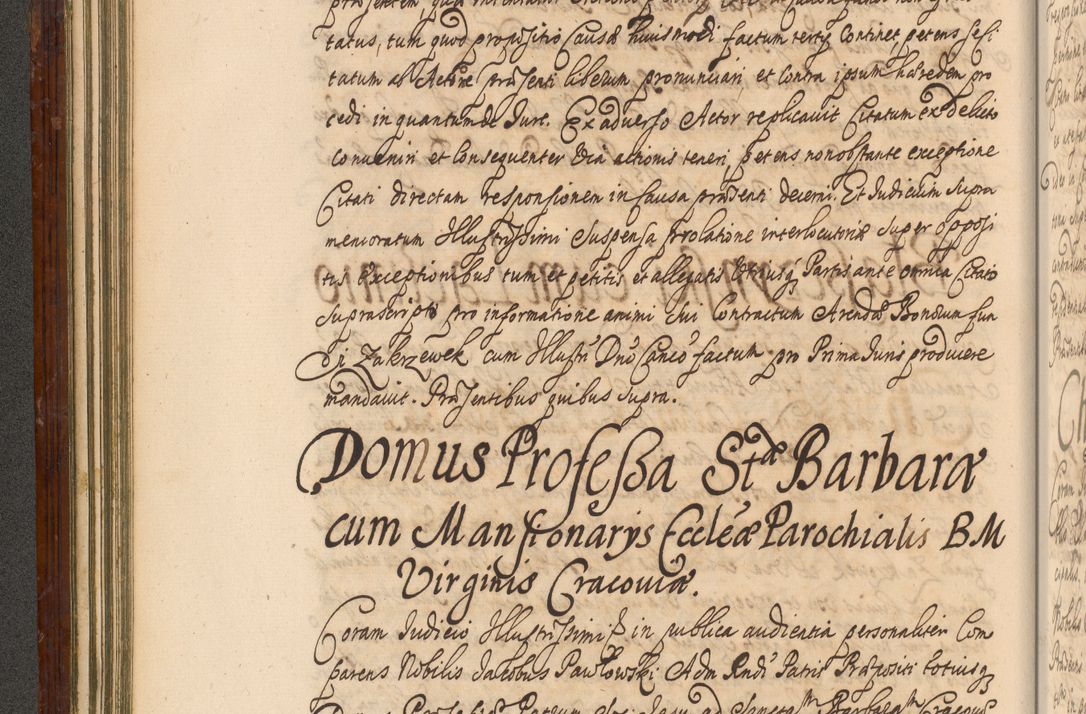 tatus, tum quod propositio Causæ huiusmodi factum tertij Continet, petens se Ci
tatum ab Actore præsenti liberum pronunciari, et Contra ipsum hæredem pro
cedi in quantum de Jure. Ex adverso Actor replicavit Citatum ex delicto
conveniri et Consequenter Via actionis teneri, petens non obstante exceptione
Citati directam responsionem in Causa præsenti decerni. Et Judicium Supra
memoratum Illustrissimi Suspensa prolatione interlocutoriæ Super opposi
tis Exceptionibus tum et petitis et allegatis Utriusq; Partis ante omnia Citato
Suprascripto pro informatione animi Sui Contractum Arendæ Bonorum fun
di Zakrzewek cum Illustri Dno Canco factum pro Prima Juris producere
mandavit. Præsentibus quibus Supra.
Domus Professa Stæ Barbaræ
cum Mansionarys Eccleæ Parochialis B M
Virginis Cracoviæ.
Coram Judicio Illustrissimi &c in publica audientia personaliter Com
parens Nobilis Jacobus Pawłowski Adm Rndi Patris Præpositi totiusq